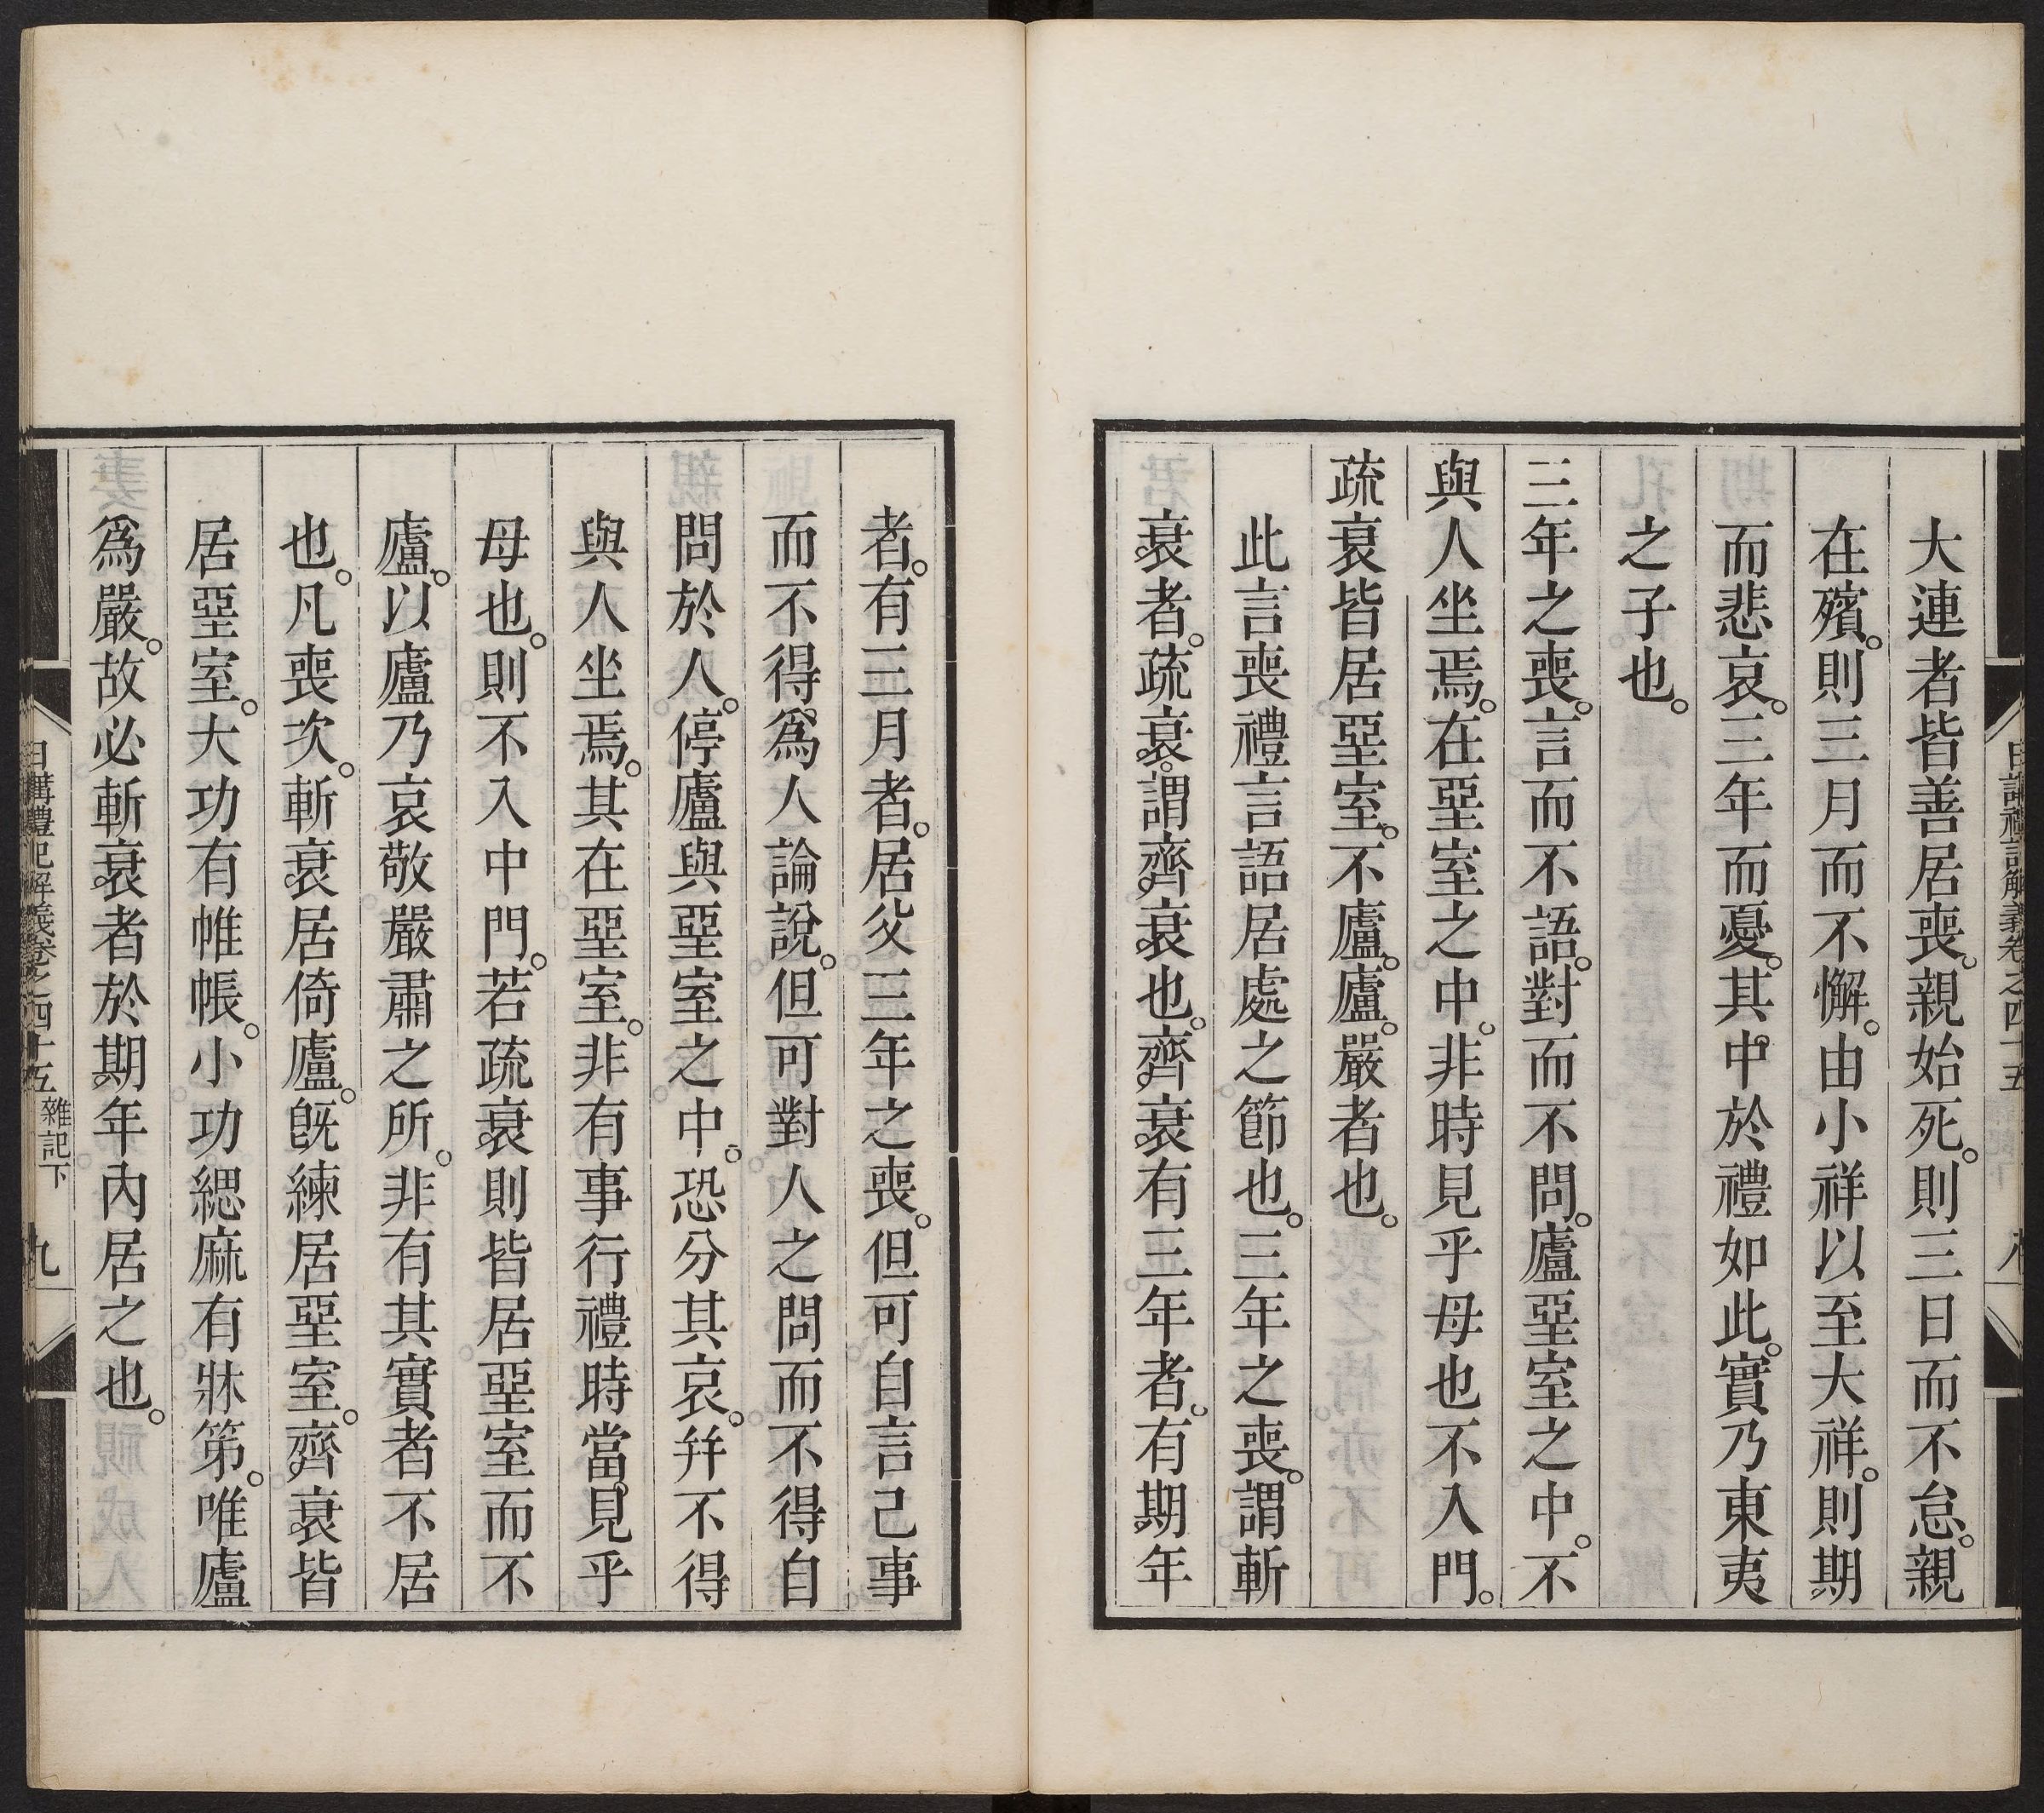 大連者皆善居喪。親始死。則三日而不怠。親
在殯。則三月而不懈。由小祥以至大祥。則期
而悲哀。三年而憂。其中於禮如此。實乃東夷
之子也。
三年之喪。言而不語。對而不問。廬堊室之中。不
與人坐焉。在堊室之中。非時見乎母也不入門。
疏衰皆居堊室。不廬。廬。嚴者也。
此言喪禮言語居處之節也。三年之喪。謂斬
衰者。疏衰。謂齊衰也。齊衰有三年者。有期年
者。有三月者。居父三年之喪。但可自言己事
而不得爲人論說。但可對人之問而不得自
問於人。停廬與堊室之中。恐分其哀。并不得
與人坐焉。其在堊室。非有事行禮時當見乎
母也。則不入中門。若疏衰則皆居堊室而不
廬。以廬乃哀敬嚴肅之所。非有其實者不居
也。凡喪次。斬衰居倚廬。旣練居堊室。齊衰皆
居堊室。大功有帷帳。小功緦麻有牀第。唯廬
爲嚴。故必斬衰者於期年內居之也。
日講禮記解義卷之四十五 雜記下 九